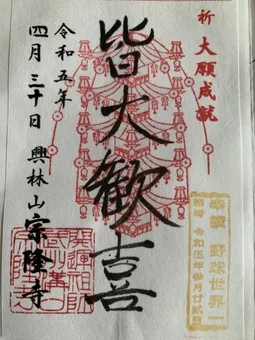 祈 大願成就
皆大歓喜
令和五年
四月三十日 興林山宗隆寺
奉讃 野球世界一
令和伍年参月廿弐日